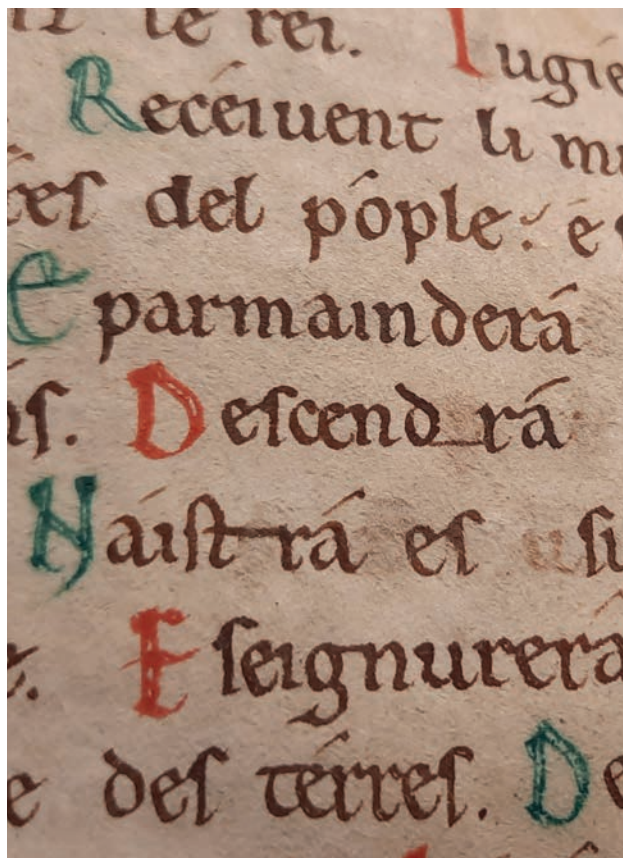 le rei. Iugie
Recéiuent li
del póple: é
E parmainderá
Descendrá
Náistrá es su
E seignurerá
e des térres. De